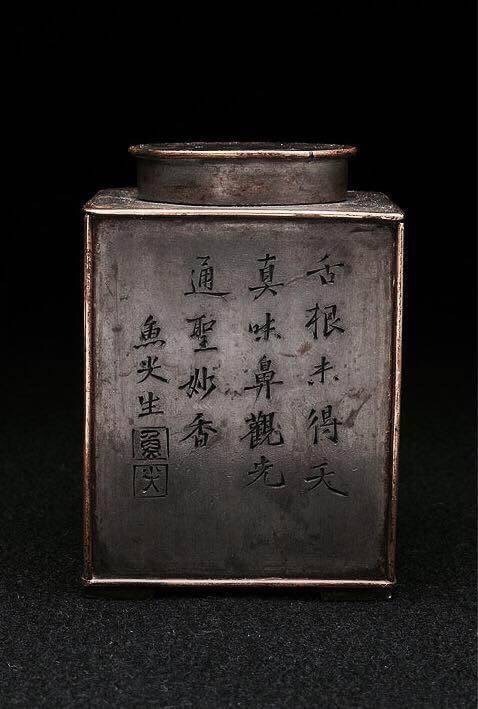 舌根未得天
真味鼻觀先
通聖妙香
魚尖生
魚
尖